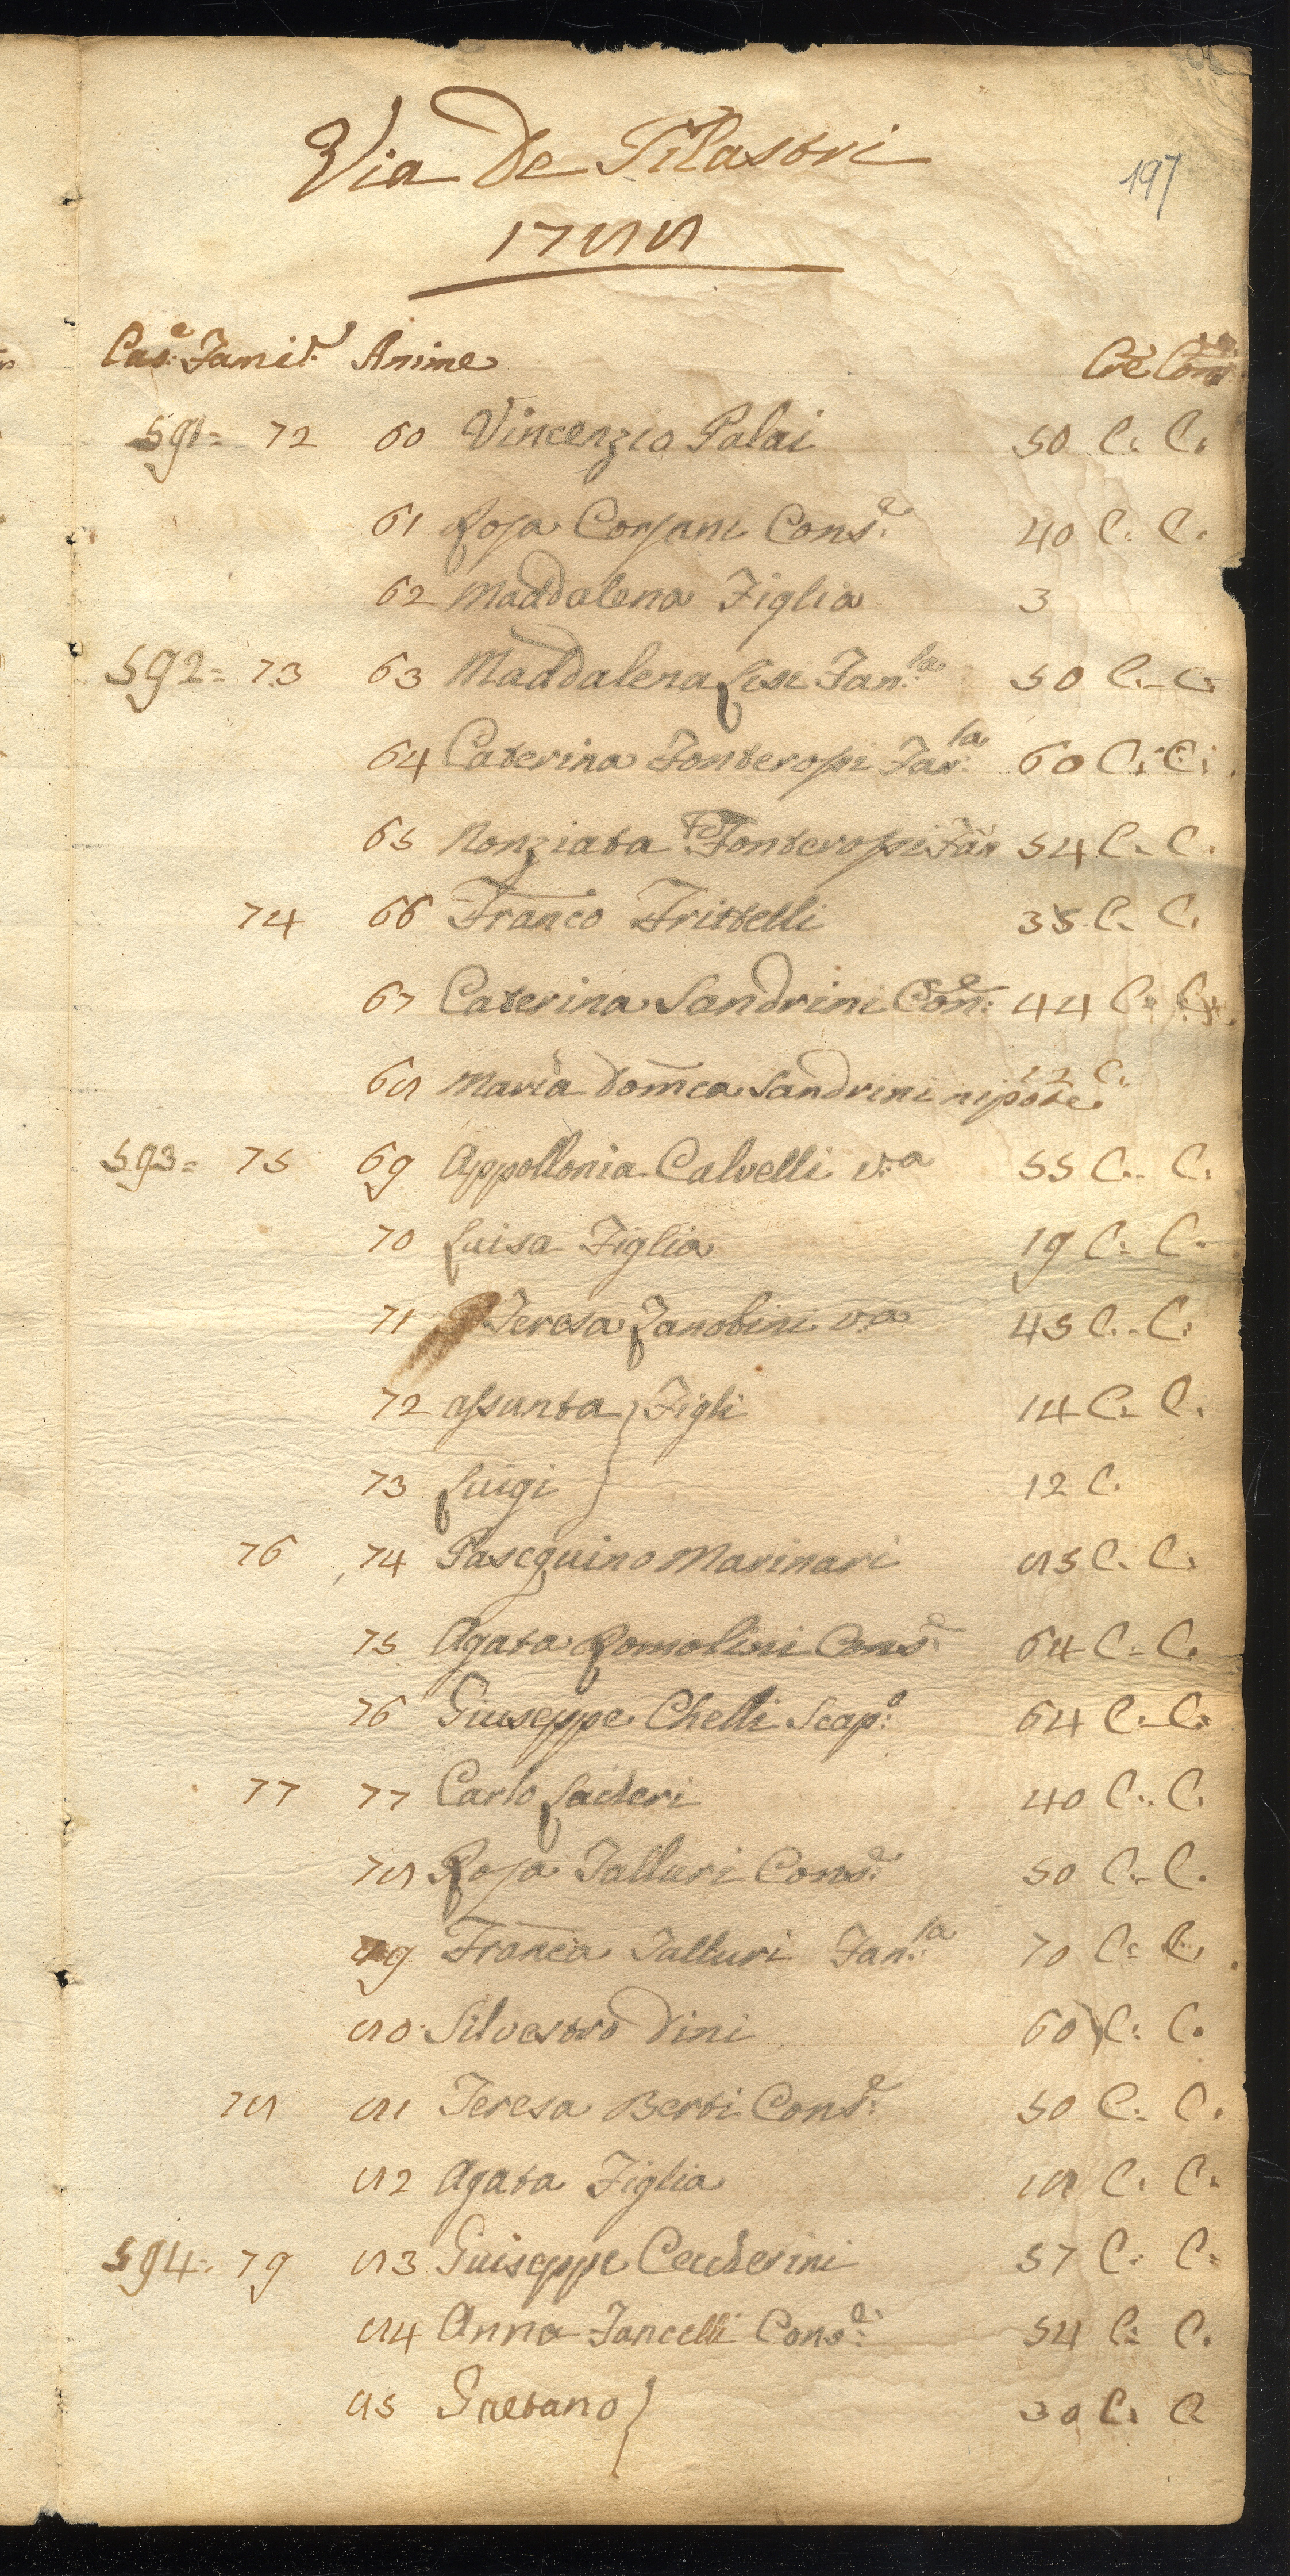 Via De Pilastri
197
1788
Cas:e Famil:e Anime Cre Com
591= 72 60 Vincenzio Palai 50 C. C.
61 Rosa Corsani Cons:e 40 C. C.
62 Maddalena Figlia 3
592= 73 63 Maddalena Lisi Fan:la 50 C. C.
64 Caterina Fonterossi Fan:la 60 C. C.
65 Nonziata Fonterossi Fan 54 C. C.
74 66 Franco Frittelli 35 C. C.
67 Caterina Sandrini Con:e 44 C. C.
68 Maria Domca Sandrini nipote 12 C.
593= 75 69 Appollonia Calvelli v:a 55 C. C.
70 Luisa Figlia 19 C. C.
71 Teresa Zanobini v:a 45 C. C.
72 Assunta } Figli 14 C. C.
73 Luigi } 12 C.
76 74 Pascquino Marinari 85 C. C.
75 Agata Romolini Cons:e 64 C. C.
76 Giuseppe Chelli Scap:o 64 C. C.
77 77 Carlo 40 C. C.
78 Rosa Talluri Cons:e 50 C. C.
79 Franca Talluri Fan:la 70 C. C.
80 Silvestro Dini 60 C. C.
78 81 Teresa Berti Cons:e 50 C. C.
82 Agata Figlia 18 C. C.
594= 79 83 Guiseppe Ceccherini 57 C. C.
84 Anna Fancelli Cons:e 54 C. C.
85 Gaetano } 30 C. C